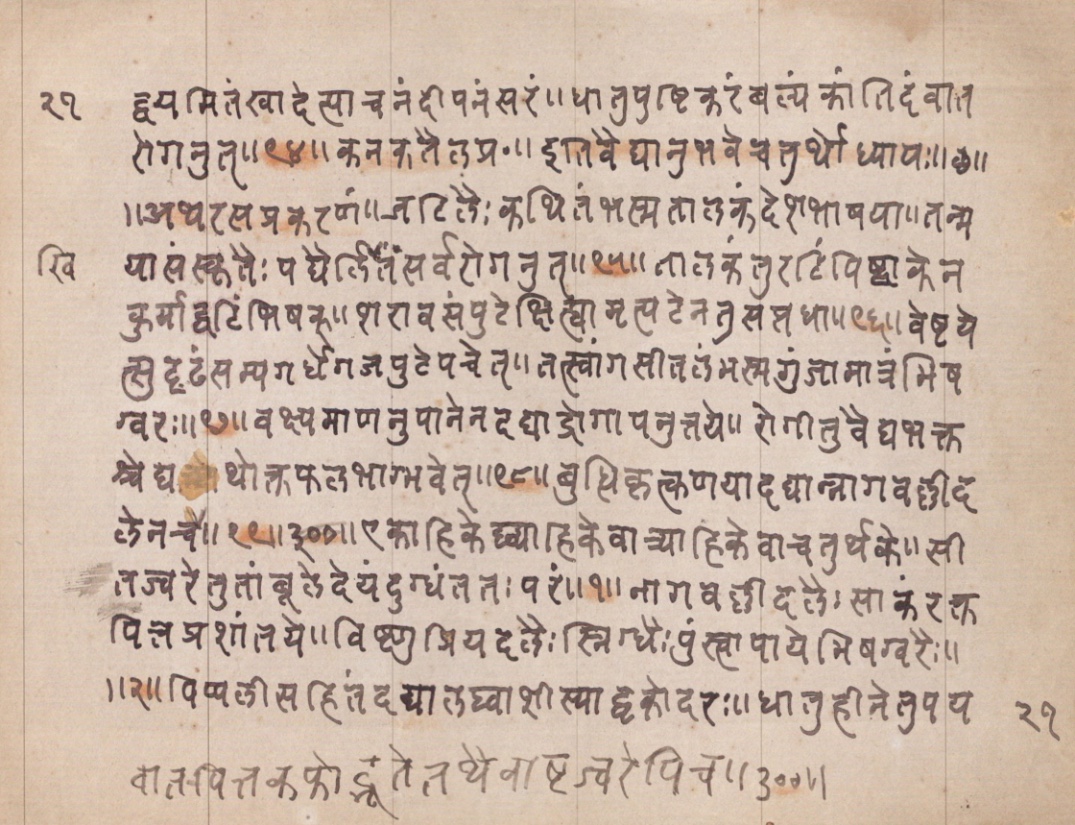 २१ द्वयमितंखादेत्पाचनंदीपनंसरं॥धातुपुष्टिकरंबल्यंकांतिदंवात
रोगनुत्॥९४॥कनकतैलप्र॰॥इतिवैद्यानुभवेचतुर्थोध्यायः॥छ॥
॥अथरसप्रकरणं॥जटिलैःकथितंभस्मतालकंदेशभाषया॥तन्म
खि यासंस्कृतैःपद्यैर्लिखितंसर्वरोगनुत्॥९५॥तालकंतुरटिंपिष्ट्वाकेन
कुर्माद्वटिंभिषक्॥शरावसंपुटेक्षित्वामृत्पटेनतुसप्तधा॥९६॥वेष्टये
त्सुदृढंसम्यगर्धेगजपुटेपचेत्॥तत्स्वांगसीतलंभस्मगुंजामात्रंभिष
ग्वरः॥९७॥वक्ष्यमाणनुपानेनदद्याद्रोगापनुत्तये॥रोगीतुवैद्यभक्त
श्चेद्य थोक्तफलभाग्भवेत्॥९८॥
लेनच॥९९॥३००॥एकाहिकेद्व्याहिकेवात्र्याहिकेवाचतुर्थके॥सी
तज्वरेतुतांबूलेदेयंदुग्धंततःपरं॥१॥नागवल्लीदलैःसाकंरक्त
पित्तप्रशांतये॥विष्णुप्रियदलैःस्निग्धैःपुंस्त्वापायेभिषग्वरैः॥
॥२॥पिप्पलीसहितंदद्यालघ्वाशीस्याद्वृकोदरः॥धातुहीनेतुपय २१
वातपित्तकफोद्भूतेतथैवाष्टज्वरेपिच॥३००॥